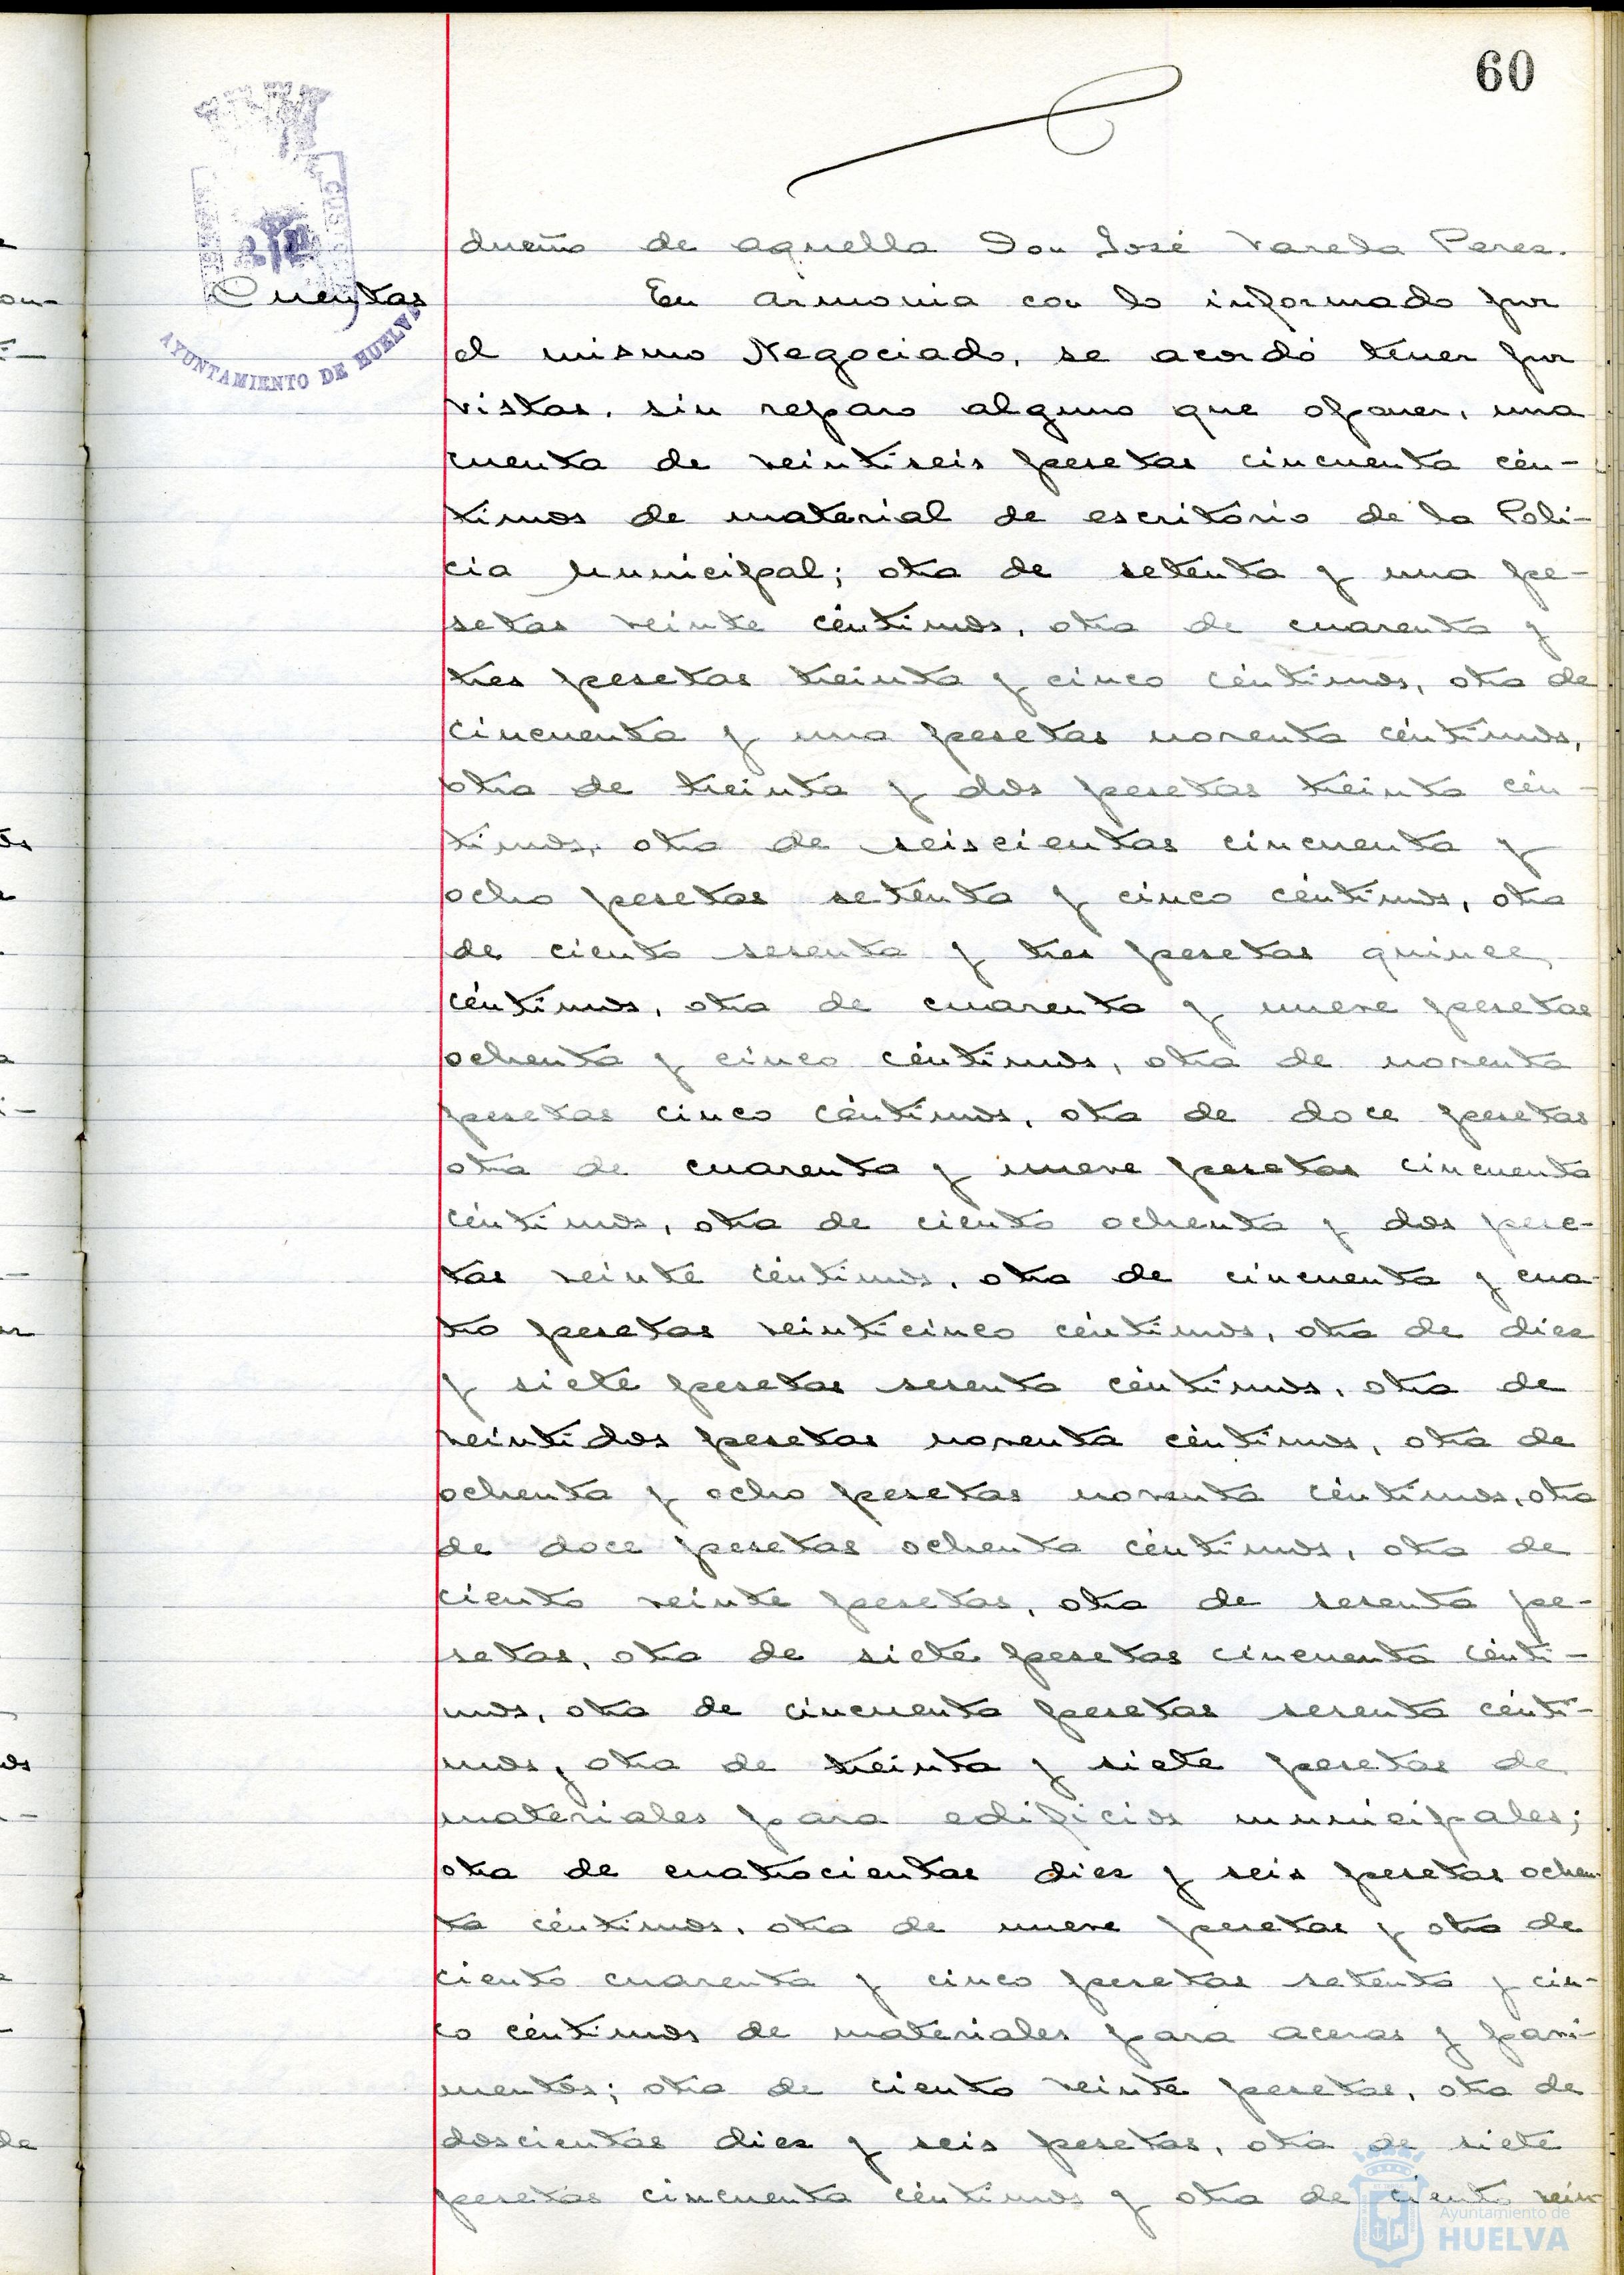 60
dueño de aquella Don José Varela Perez.
Cuentas
AYUNTAMIENTO DE HUELVA
En armonia con lo informado por
el mismo Negociado, se acordó tener por
vistas, sin reparo alguno que oponer, una
cuenta de veintiseis pesetas cincuenta cén-
timos de material de escritorio de la Poli-
cia Municipal; otra de setenta y una pe-
setas veinte céntimos, otra de cuarenta y
tres pesetas treinta y cinco céntimos, otra de
cincuenta y una pesetas noventa céntimos,
otra de treinta y dos pesetas treinta cén-
timos, otra de seiscientas cincuenta y
ocho pesetas setenta y cinco céntimos, otra
de ciento sesenta y tres pesetas quince
céntimos, otra de cuarenta y nueve pesetas
ochenta y cinco céntimos, otra de noventa
pesetas cinco céntimos, otra de doce pesetas
otra de cuarenta y nueve pesetas cincuenta
céntimos, otra de ciento ochenta y dos pese-
tas veinte céntimos, otra de cincuenta y cua-
tro pesetas veinticinco céntimos, otra de diez
y siete pesetas sesenta céntimos, otra de
veintidos pesetas noventa céntimos, otra de
ochenta y ocho pesetas noventa céntimos, otra
de doce pesetas ochenta céntimos, otra de
ciento veinte pesetas, otra de sesenta pe-
setas, otra de siete pesetas cincuenta cénti-
mos, otra de cincuenta pesetas sesenta cénti-
mos, otra de treinta y siete pesetas de
materiales para edificios municipales;
otra de cuatrocientas diez y seis pesetas ochen-
ta céntimos, otra de nueve pesetas y otra de
ciento cuarenta y cinco pesetas setenta y cin-
co céntimos de materiales para aceras y pavi-
mentos; otra de ciento veinte pesetas, otra de
doscientas diez y seis pesetas, otra de siete
pesetas cincuenta céntimos y otra de ciento vein-
Ayuntamiento de
HUELVA